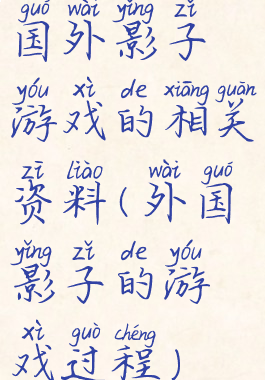 guó wài yǐng zǐ
国外影子
yóu xì de xiāng guān
游戏的相关
zī liào wài guó
资料(外国
yǐng zǐ de yóu
影子的游
xì guò chéng
戏过程)